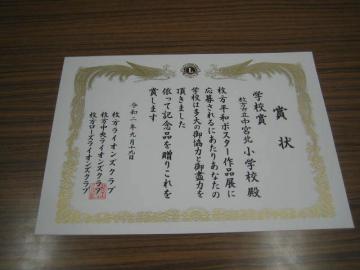 賞状
学校賞
枚方市立中宮北小学校 殿
枚方平和ポスター作品展に
応募されるにあたりあなたの
学校は多大の御協力と御盡力を
頂きました
依って記念品を贈りこれを
賞します
令和二年九月十九日
枚方ライオンズクラブ
枚方中央ライオンズクラブ
枚方ローズライオンズクラブ